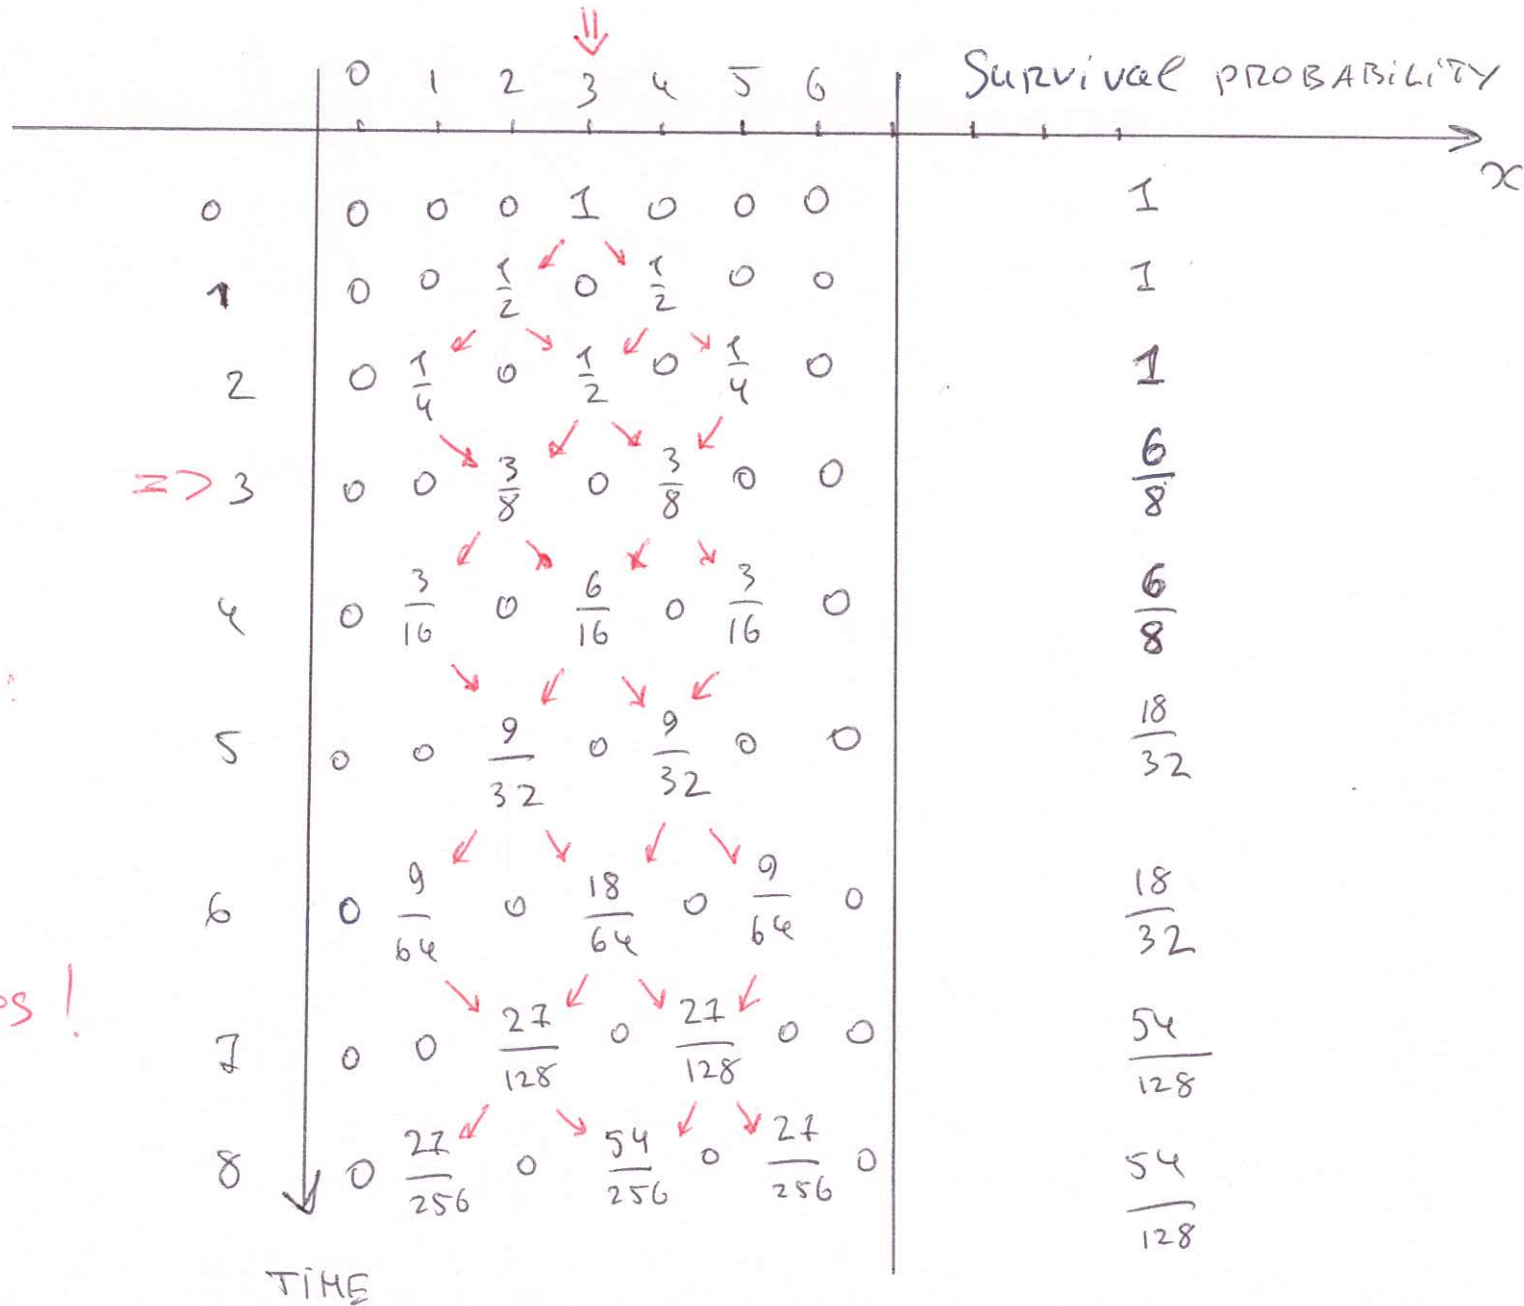 ⇓
0 1 2 3 4 5 6 Survival PROBABILITY
x
0 0 0 0 1 0 0 0 1
1 0 0 1/2 0 1/2 0 0 1
2 0 1/4 0 1/2 0 1/4 0 1
=> 3 0 0 3/8 0 3/8 0 0 6/8
4 0 3/16 0 6/16 0 3/16 0 6/8
5 0 0 9/32 0 9/32 0 0 18/32
6 0 9/64 0 18/64 0 9/64 0 18/32
7 0 0 27/128 0 27/128 0 0 54/128
8 0 27/256 0 54/256 0 27/256 0 54/128
TIME